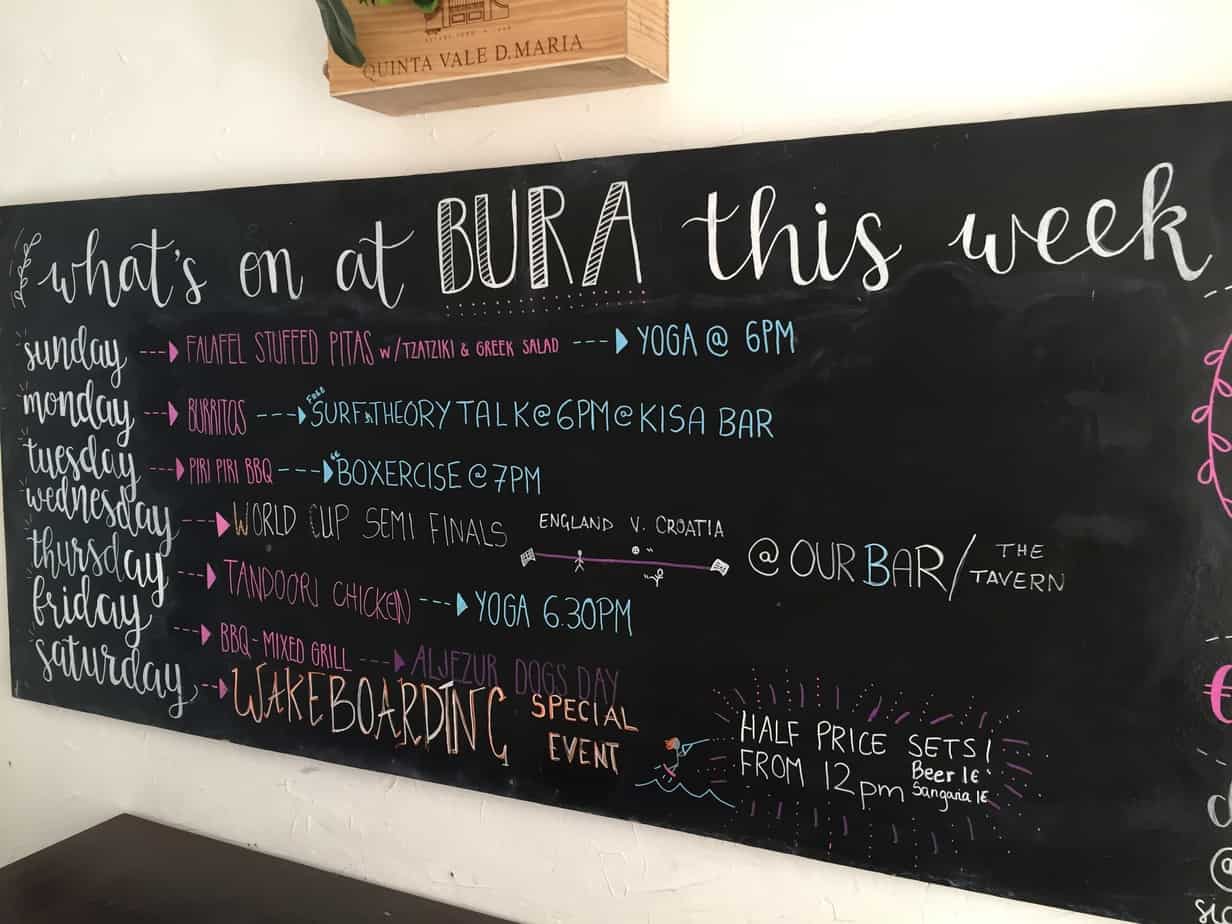 QUINTA VALE D. MARIA
what's on at BURA this week
sunday FALAFEL STUFFED PITAS W/TZATZIKI & GREEK SALAD YOGA @ 6PM
monday BURRITOS FREE SURF THEORY TALK @ 6PM @ KISA BAR
tuesday PIRI PIRI BBQ BOXERCISE @ 7PM
wednesday WORLD CUP SEMI FINALS ENGLAND V. CROATIA @ OUR BAR / THE TAVERN
thursday TANDOORI CHICKEN YOGA 6.30PM
friday BBQ - MIXED GRILL ALJEZUR DOGS DAY
saturday WAKEBOARDING SPECIAL EVENT
HALF PRICE SETS!
FROM 12pm Beer 1€
Sangaria 1€